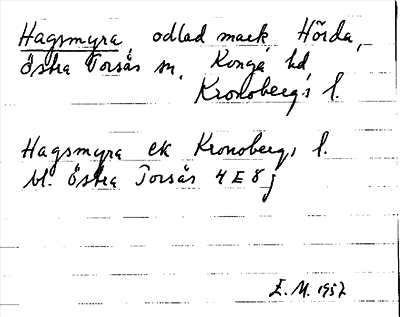 Hagsmyra, odlad mark Hörda,
Östra Torsås sn, Konga hd
Kronobergs l.
Hagsmyra ek Kronobergs l.
bl. Östra Torsås 4 E 8 j
E. M. 1957